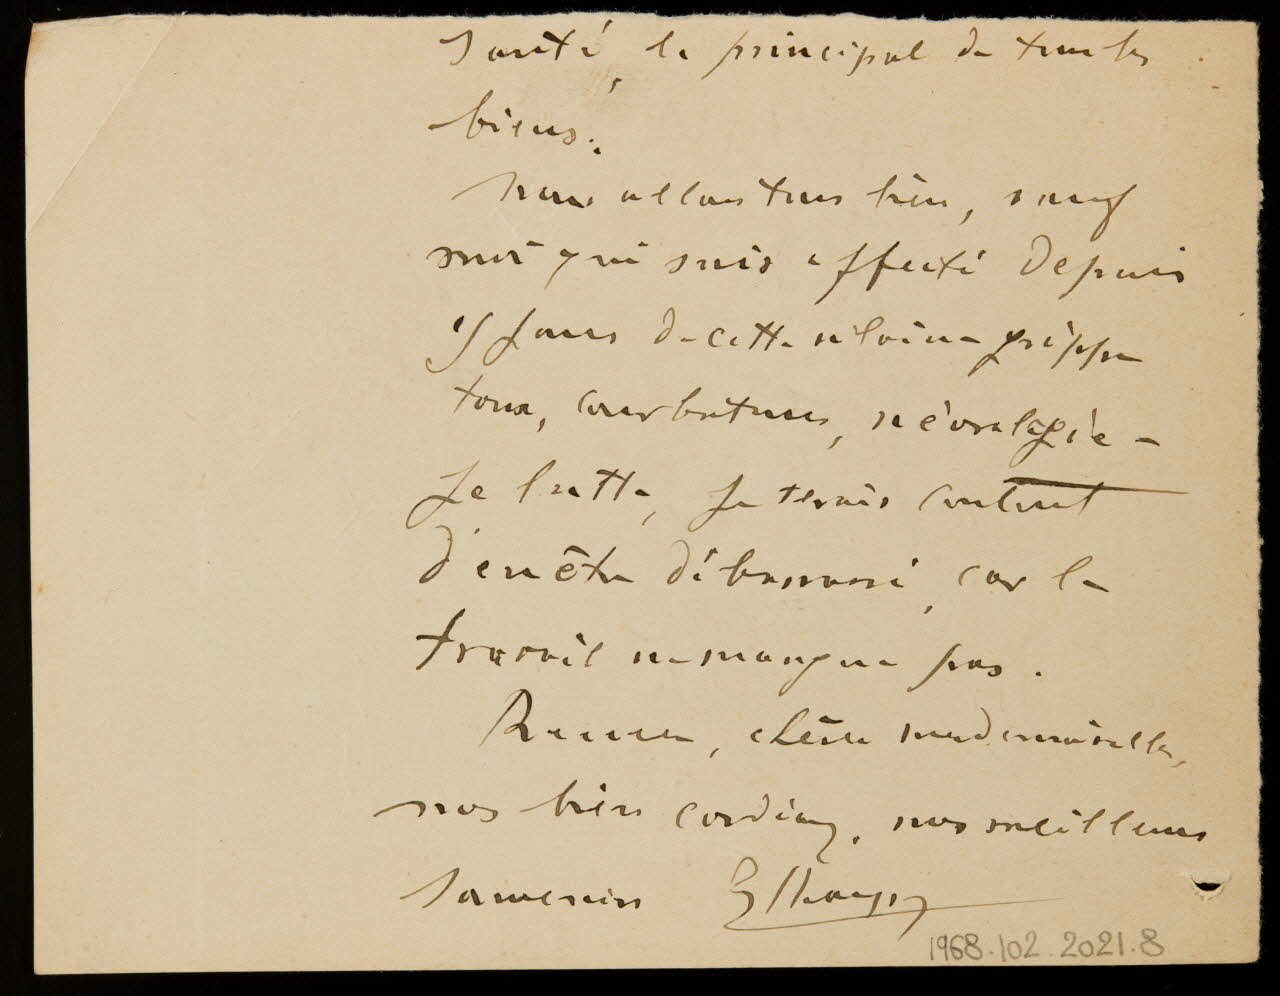 santé, le principal de tous les
biens.
Nous allons tous bien, sauf
moi qui suis affecté depuis
jours de cette vilaine grippe
toux, courbatures, névralgie -
Je lutte, je serais content
d'en être débarrassé, car le
travail ne manque pas.
Recevez, chère mademoiselle,
nos bien cordiaux, nos meilleurs
souvenirs
1968.102.2021.8